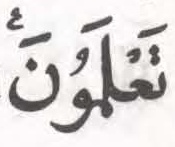 تَعْلَمُونَ ۴